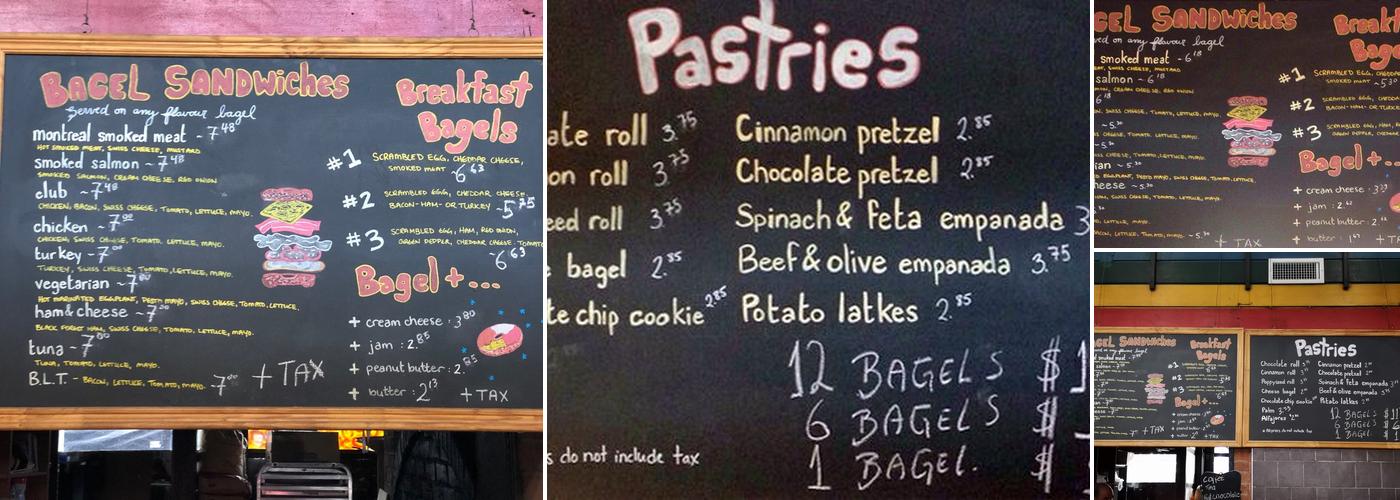 BAGEL SANDWICHES
Served on any flavour bagel
montreal smoked meat - 7 48
HOT SMOKED MEAT, SWISS CHEESE, MUSTARD
smoked salmon ~ 7 48
SMOKED SALMON, CREAM CHEESE, RED ONION
club ~ 7 48
CHICKEN, BACON, SWISS CHEESE, TOMATO, LETTUCE, MAYO.
chicken ~ 7 00
CHICKEN, SWISS CHEESE, TOMATO, LETTUCE, MAYO.
turkey ~ 7 00
TURKEY, SWISS CHEESE, TOMATO, LETTUCE, MAYO.
vegetarian ~ 7 00
HOT MARINATED EGGPLANT, PESTO MAYO, SWISS CHEESE, TOMATO, LETTUCE.
ham & cheese ~ 7 00
BLACK FOREST HAM, SWISS CHEESE, TOMATO, LETTUCE, MAYO.
tuna ~ 7 00
TUNA, TOMATO, LETTUCE, MAYO.
B.L.T. - BACON, LETTUCE, TOMATO, MAYO. - 7 00
+ TAX
Breakfast
Bagels
#1 SCRAMBLED EGG, CHEDDAR CHEESE,
SMOKED MEAT ~ 6 63
#2 SCRAMBLED EGG, CHEDDAR CHEESE,
BACON - HAM - OR TURKEY ~ 5 75
#3 SCRAMBLED EGG, HAM, RED ONION,
GREEN PEPPER, CHEDDAR CHEESE, TOMATO
~ 6 63
Bagel + ...
+ cream cheese : 3 80
+ jam : 2.85
+ peanut butter : 2.85
+ butter : 2 13
+ TAX
Pastries
ate roll 3.75
on roll 3.75
eed roll 3.75
bagel 2.85
te chip cookie 2.85
Cinnamon pretzel 2.85
Chocolate pretzel 2.85
Spinach & feta empanada 3
Beef & olive empanada 3.75
Potato latkes 2.85
12 BAGELS $1
6 BAGELS $
1 BAGEL. $
s do not include tax
GEL SANDWICHES
ved on any flavour bagel
smoked meat - 6 18
salmon - 6 18
Breakf
Bage
#1 SCRAMBLED EGG, CHEDDA
SMOKED MEAT ~ 5 30
#2 SCRAMBLED EGG, CHEDDA
BACON - HAM - OR TURKE
#3 SCRAMBLED EGG, HAM, R
Bagel + ..
+ cream cheese :
+ jam : 2.
+ peanut butter : 2.
+ butter : 1
+ TAX
AGEL SANDWICHES
Breakfast
Bagels
#1
#2
#3
Bagel + ...
+ TAX
+ TAX
Pastries
Chocolate roll
Cinnamon roll
Poppyseed roll
Cheese bagel
Chocolate chip cookie
Palm
Alfajores
Cinnamon pretzel
Chocolate pretzel
Spinach & feta empanada
Beef & olive empanada
Potato latkes
12 BAGELS
6 BAGELS
1 BAGEL
Coffee
Tea